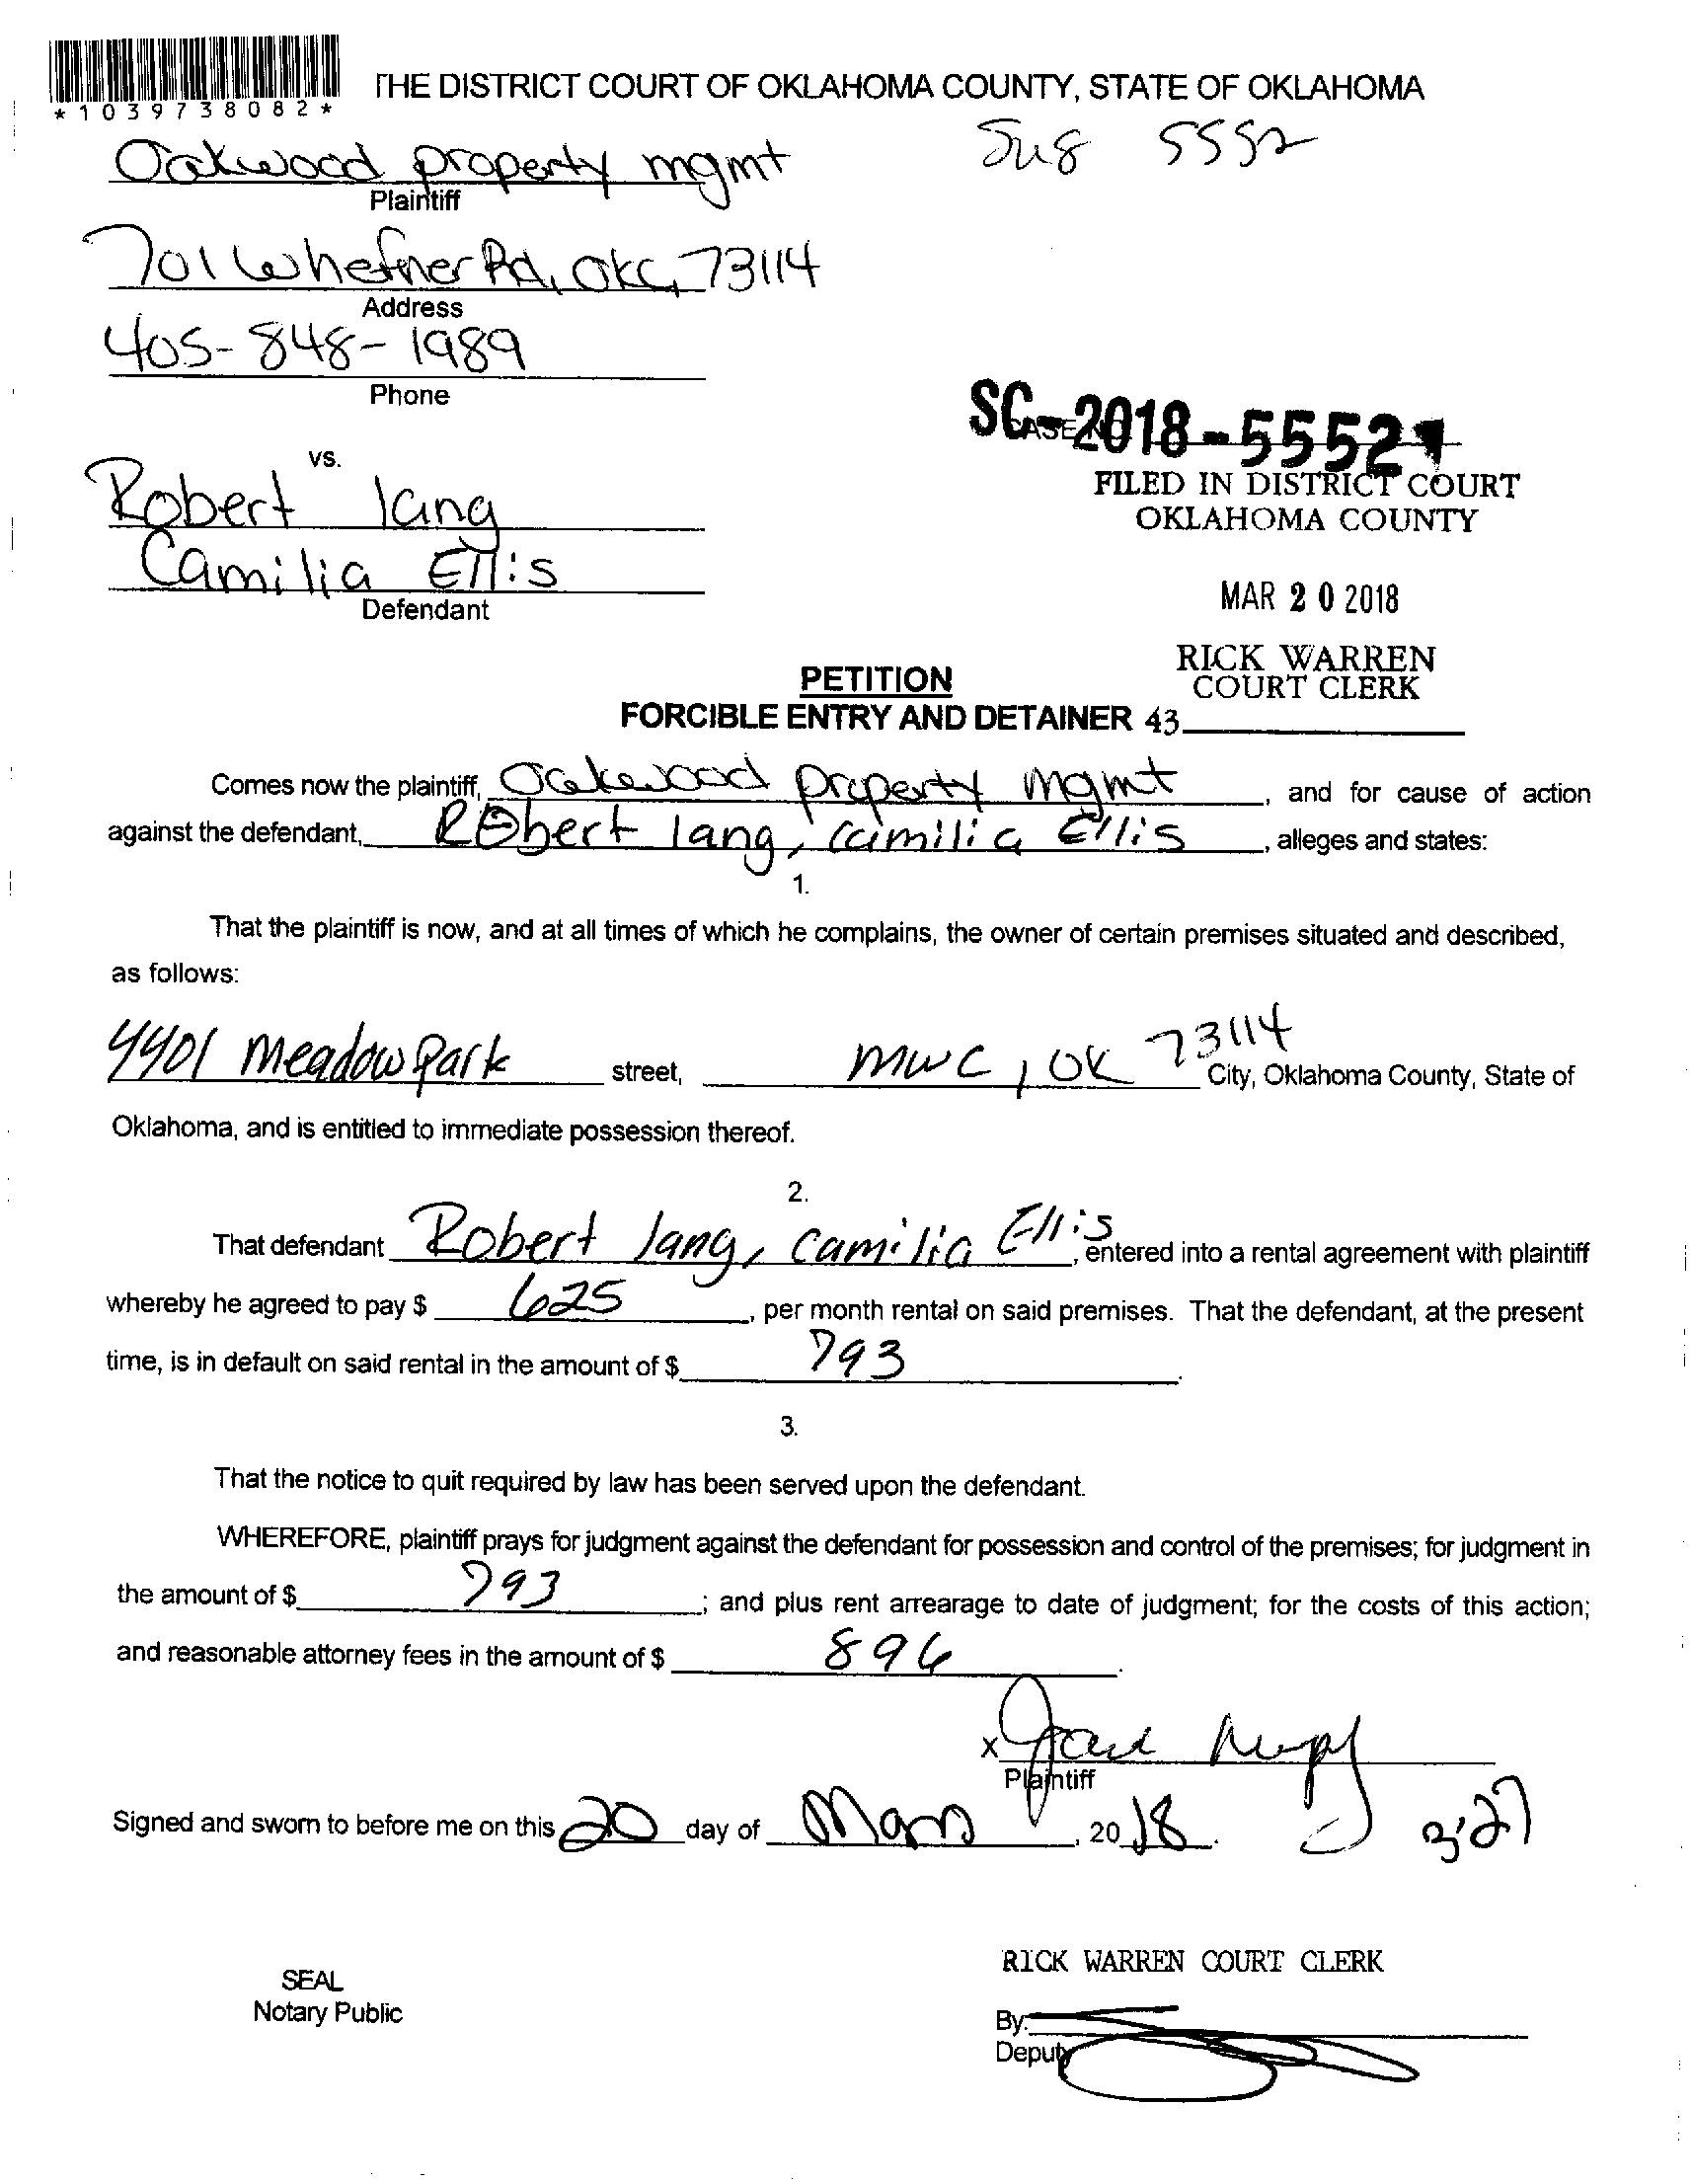 *1039738082*
THE DISTRICT COURT OF OKLAHOMA COUNTY, STATE OF OKLAHOMA
Oakwood property mgmt
5552
Plaintiff
701 Whefner Rd, OKC, 73114
Address
405-848-1989
Phone
SC-2018-5552
CASE NO.
vs.
FILED IN DISTRICT COURT
OKLAHOMA COUNTY
Robert lang
Camilia Ellis
Defendant
MAR 20 2018
RICK WARREN
COURT CLERK
PETITION
FORCIBLE ENTRY AND DETAINER 43
Comes now the plaintiff, Oakwood property mgmt, and for cause of action
against the defendant, Robert lang, camilia Ellis, alleges and states:
1.
That the plaintiff is now, and at all times of which he complains, the owner of certain premises situated and described,
as follows:
4401 Meadow Park street, MWC, OK 73114 City, Oklahoma County, State of
Oklahoma, and is entitled to immediate possession thereof.
2.
That defendant Robert lang, camilia Ellis, entered into a rental agreement with plaintiff
whereby he agreed to pay $ 625, per month rental on said premises. That the defendant, at the present
time, is in default on said rental in the amount of $ 793.
3.
That the notice to quit required by law has been served upon the defendant.
WHEREFORE, plaintiff prays for judgment against the defendant for possession and control of the premises; for judgment in
the amount of $ 793; and plus rent arrearage to date of judgment; for the costs of this action;
and reasonable attorney fees in the amount of $ 896.
x
Plaintiff
Signed and sworn to before me on this 20 day of Mar, 2018.
3.27
SEAL
Notary Public
RICK WARREN COURT CLERK
By:
Deputy